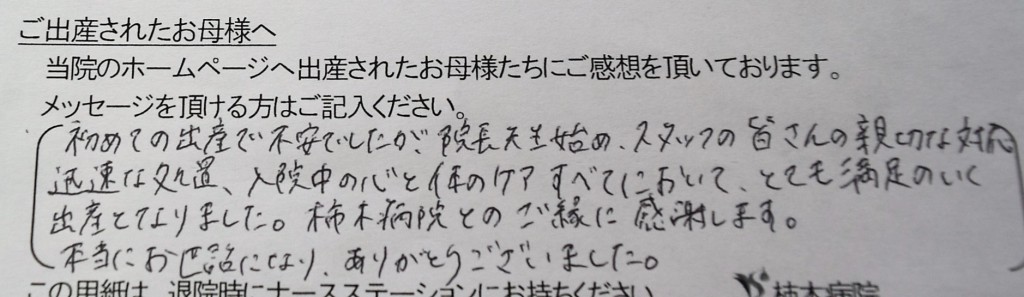 ご出産されたお母様へ
当院のホームページへ出産されたお母様たちにご感想を頂いております。
メッセージを頂ける方はご記入ください。
初めての出産で不安でしたが、院長先生始め、スタッフの皆さんの親切な対応
迅速な処置、入院中の心と体のケアすべてにおいて、とても満足のいく
出産となりました。柿木病院とのご縁に感謝します。
本当にお世話になり、ありがとうございました。
この用紙は、退院時にナースステーションにお持ちください
柿木病院